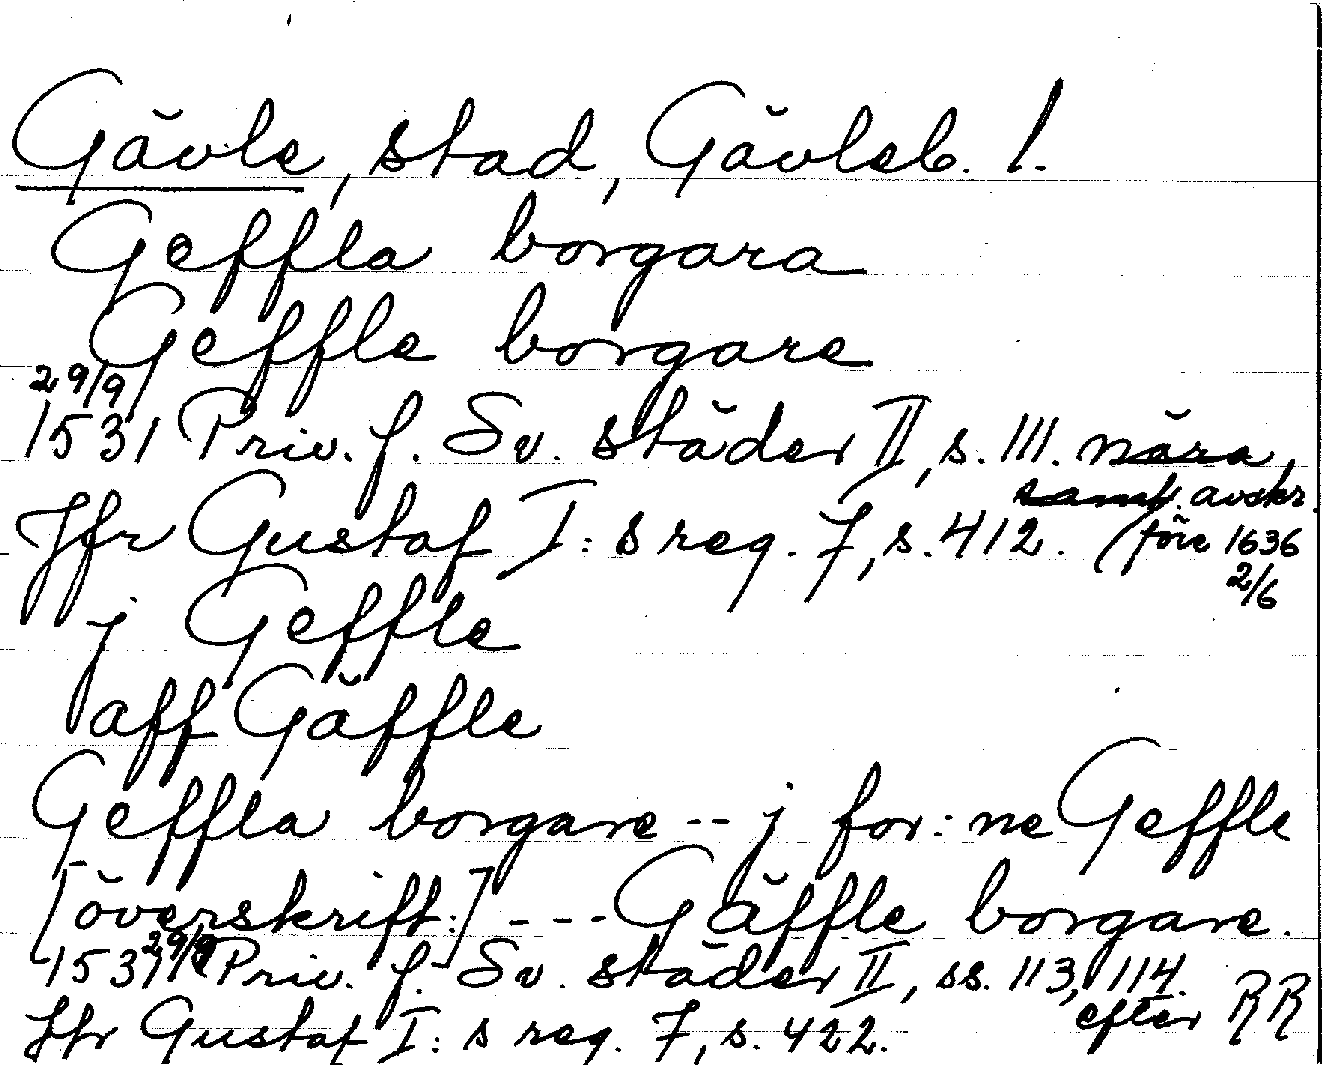 Gävle, stad, Gävleb. l.
Geffla borgara
Geffle borgare
29/9
1531 Priv. f. Sv. städer II, s. 111. nära
samt. avskr.
Jfr Gustaf I:s reg. 7, s. 412. (före 1636
2/6
j Geffle
aff Gäffle
Geffla borgare -- j for:ne Geffle
[överskrift:] --- Gäffle borgare.
29/9
1531 Priv. f. Sv. städer II, ss. 113, 114.
efter RR
Jfr Gustaf I:s reg. 7, s. 422.